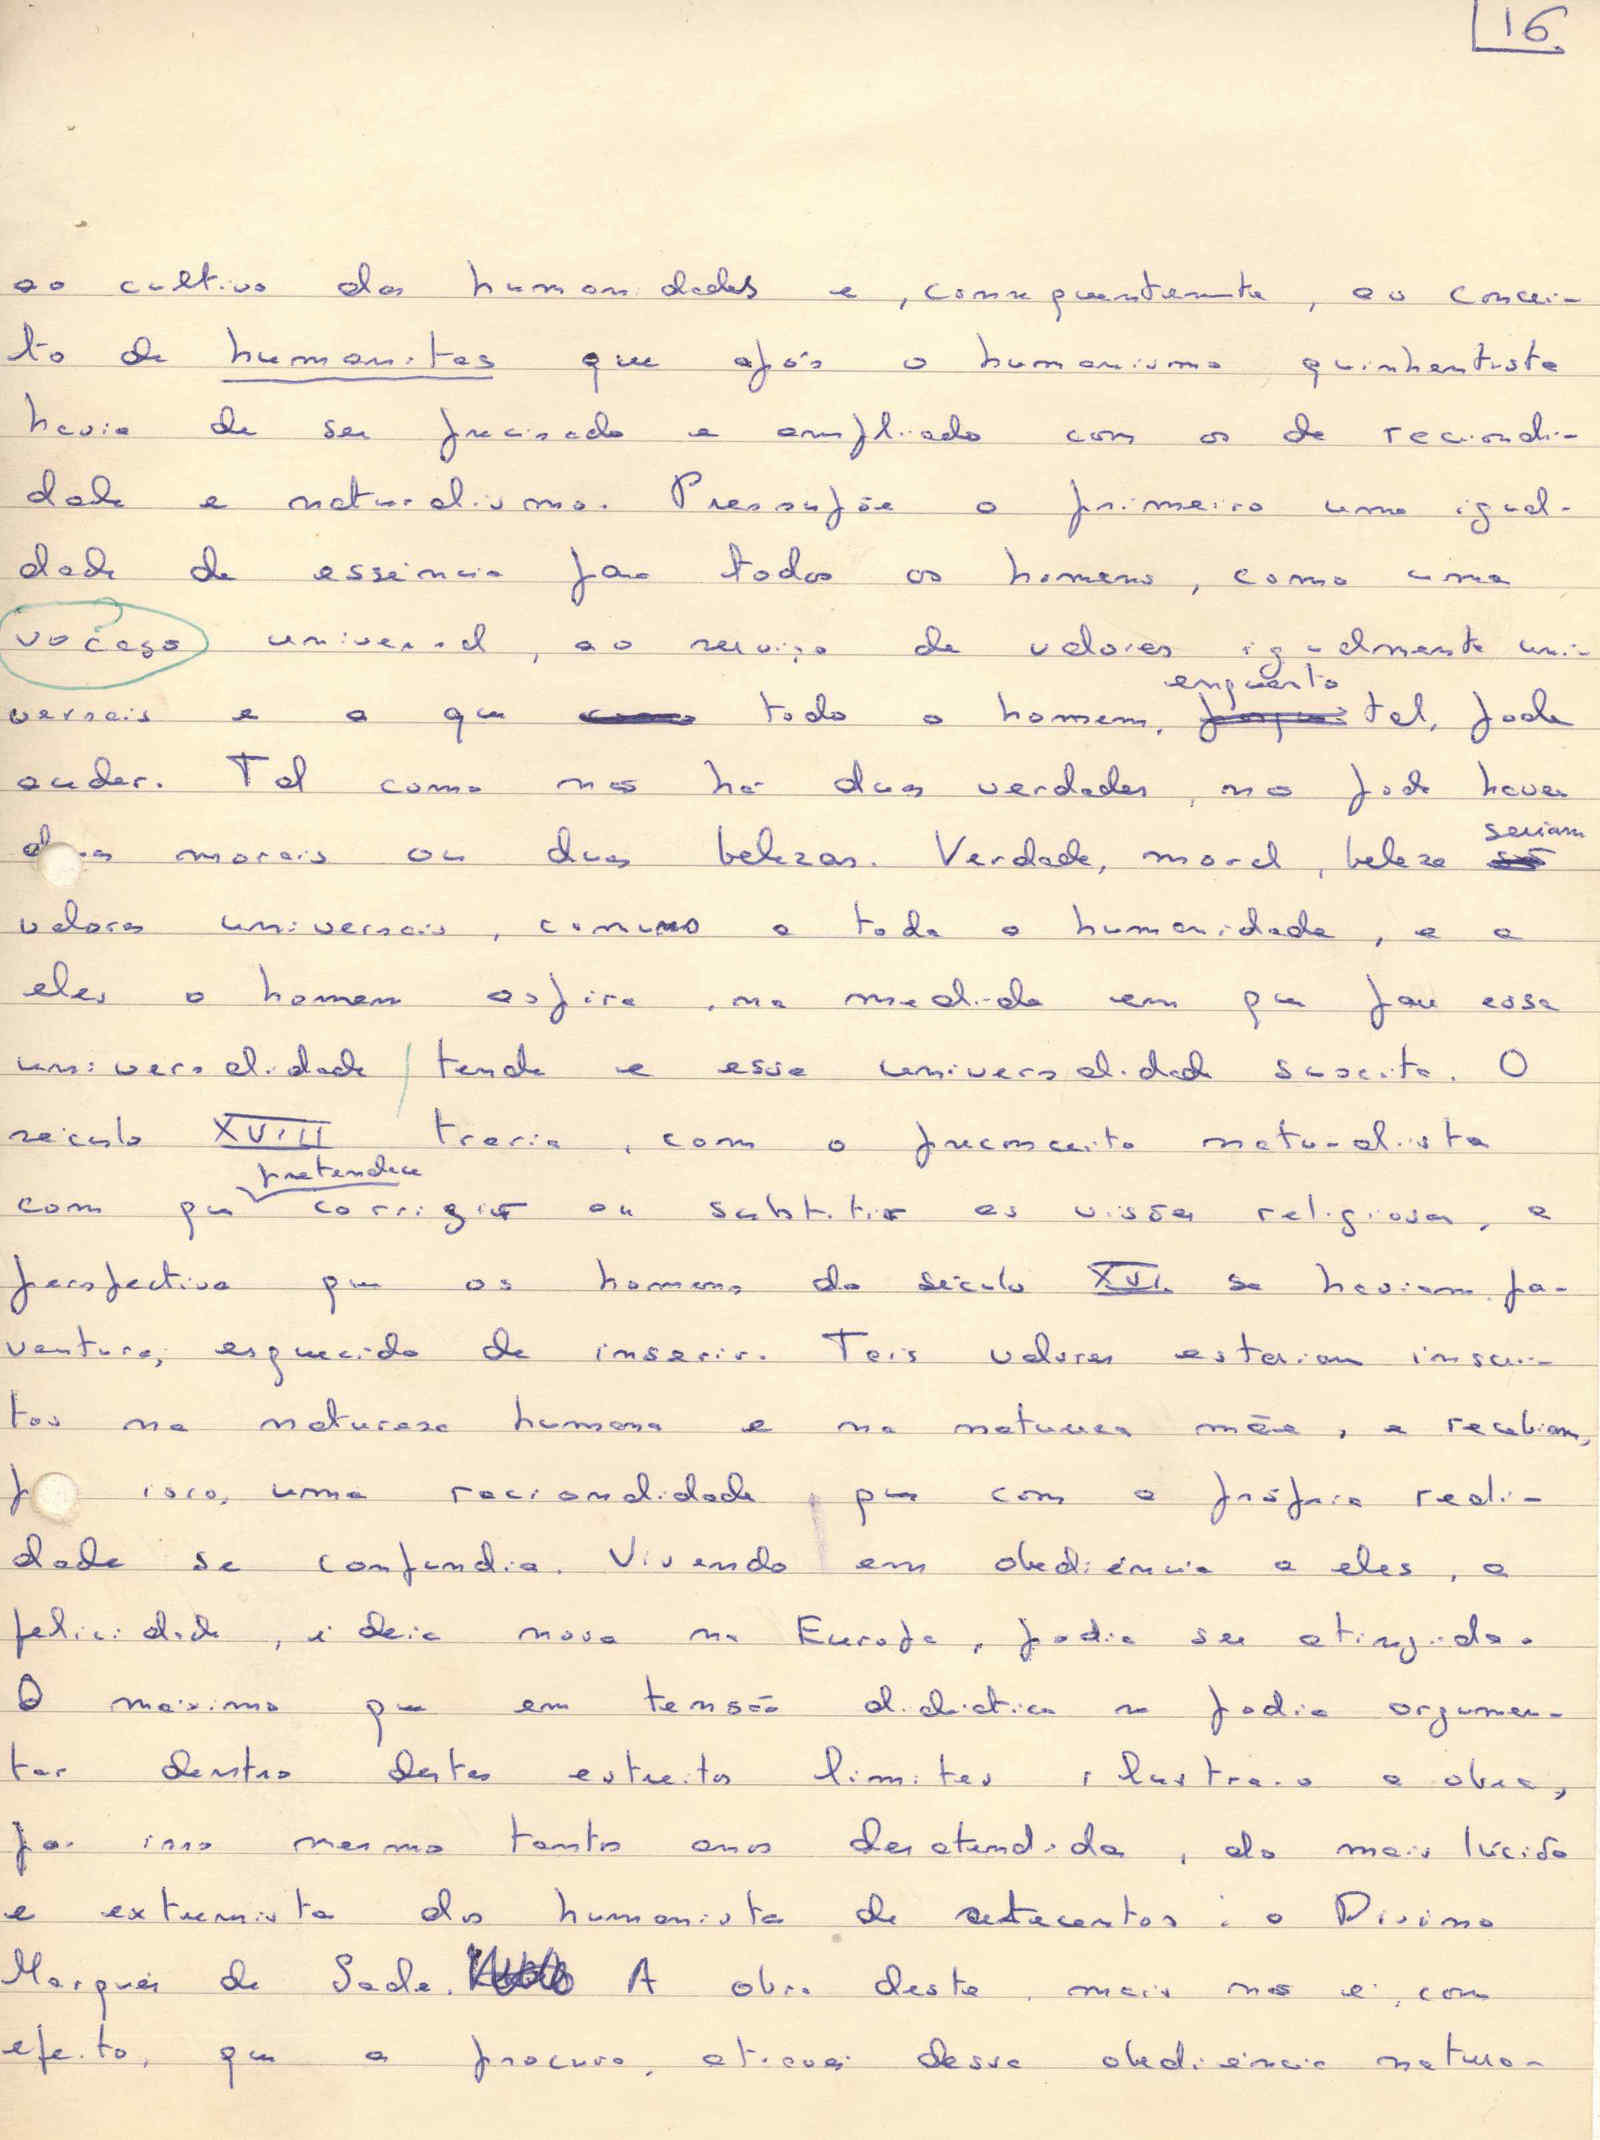 16.
ao cultivo das humanidades e, consequentemente, ao concei-
to de humanitas que após o humanismo quinhentista
havia de ser precisado e ampliado com os de racionali-
dade e naturalismo. Pressupõe o primeiro uma igual-
dade de essência para todos os homens, como uma
vocação universal, ao serviço de valores igualmente uni-
enquanto
versais e a que todo o homem, tal, pode
aceder. Tal como não há duas verdades, não pode haver
seriam
duas morais ou duas belezas. Verdade, moral, beleza
valores universais, comuns a toda a humanidade, e a
eles o homem aspira, na medida em que para essa
universalidade tende e essa universalidade suscita. O
século XVIII traria, com o preconceito naturalista
pretendeu
com que corrigir ou substituir as visões religiosas, a
perspectiva que os homens do século XVI se haviam, por-
ventura, esquecido de inserir. Tais valores estariam inscri-
tos na natureza humana e na natureza mãe, e recebiam,
por isso, uma racionalidade que com a própria reali-
dade se confundia. Vivendo em obediência a eles, a
felicidade, ideia nova na Europa, podia ser atingida.
O máximo que em tensão dialéctica se podia argumen-
tar dentro destes estreitos limites ilustra-o a obra,
por isso mesmo tantos anos desatendida, do mais lúcido
e extremista dos humanistas de setecentos: o Divino
Marquês de Sade. A obra deste, mais não é, com
efeito, que a procura, através dessa obediência natura-